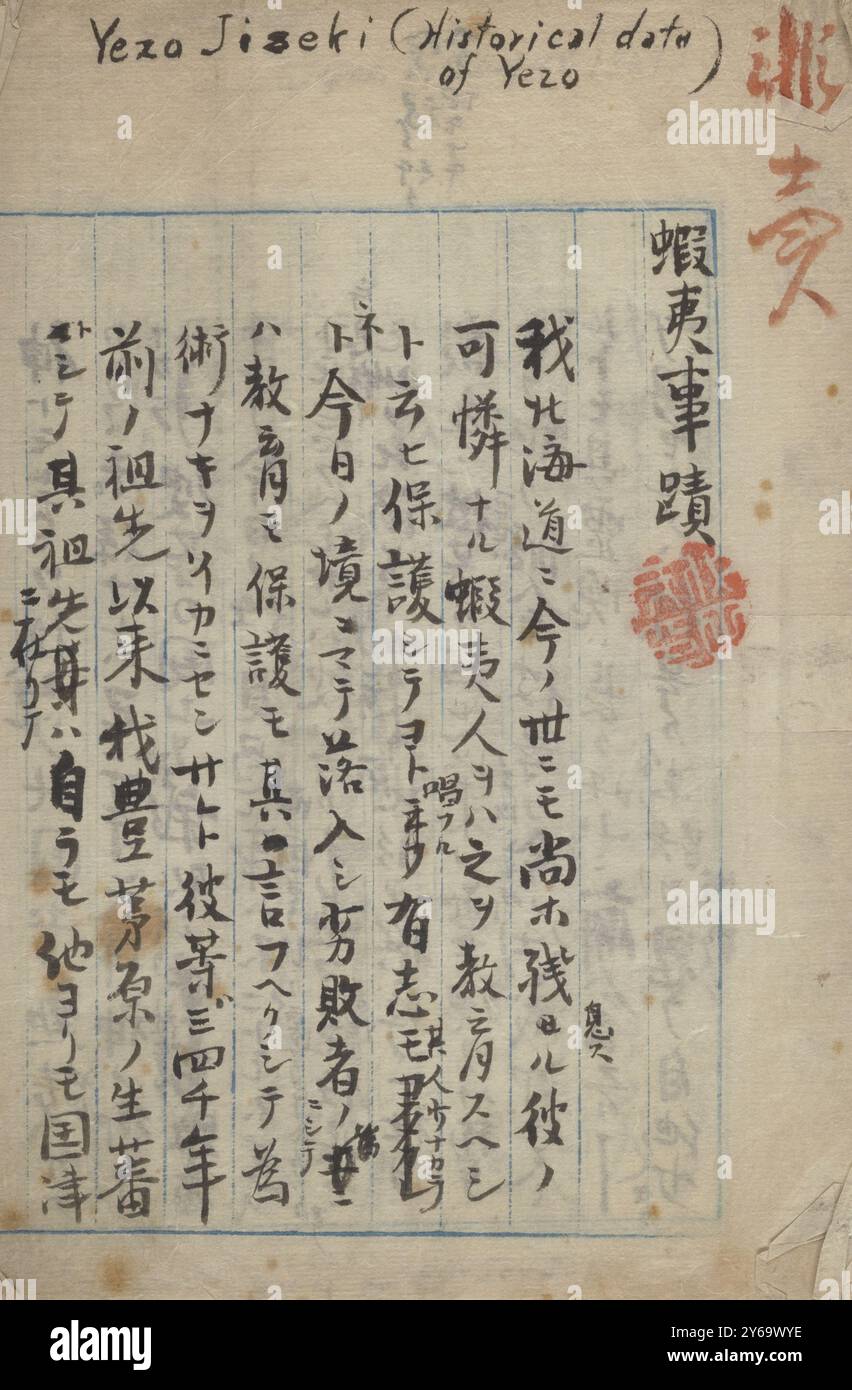 Yezo Jiseki (Historical data of Yezo)
非売
蝦夷事蹟
我北海道ニ今ノ世ニモ尚ホ残ル彼ノ
息ス
可憐ナル蝦夷人ヲハ之ヲ教育スヘシ
ト云ヒ保護シテヨト 有志モ
唱フル
其人少ナカラ
ネト今日ノ境ニマテ落入シ劣敗者ノ
ニシテ
ハ教育モ保護モ其言フヘクシテ為
術ナキヲソイカニセンサレト彼等ガ四千年
前ノ祖先以来我豊茅原ノ生蕃
シテ其祖先ハ自ラモ他ヨリモ国津
ニ在リテ
alamy
Image ID: 2Y69WYE
www.alamy.com